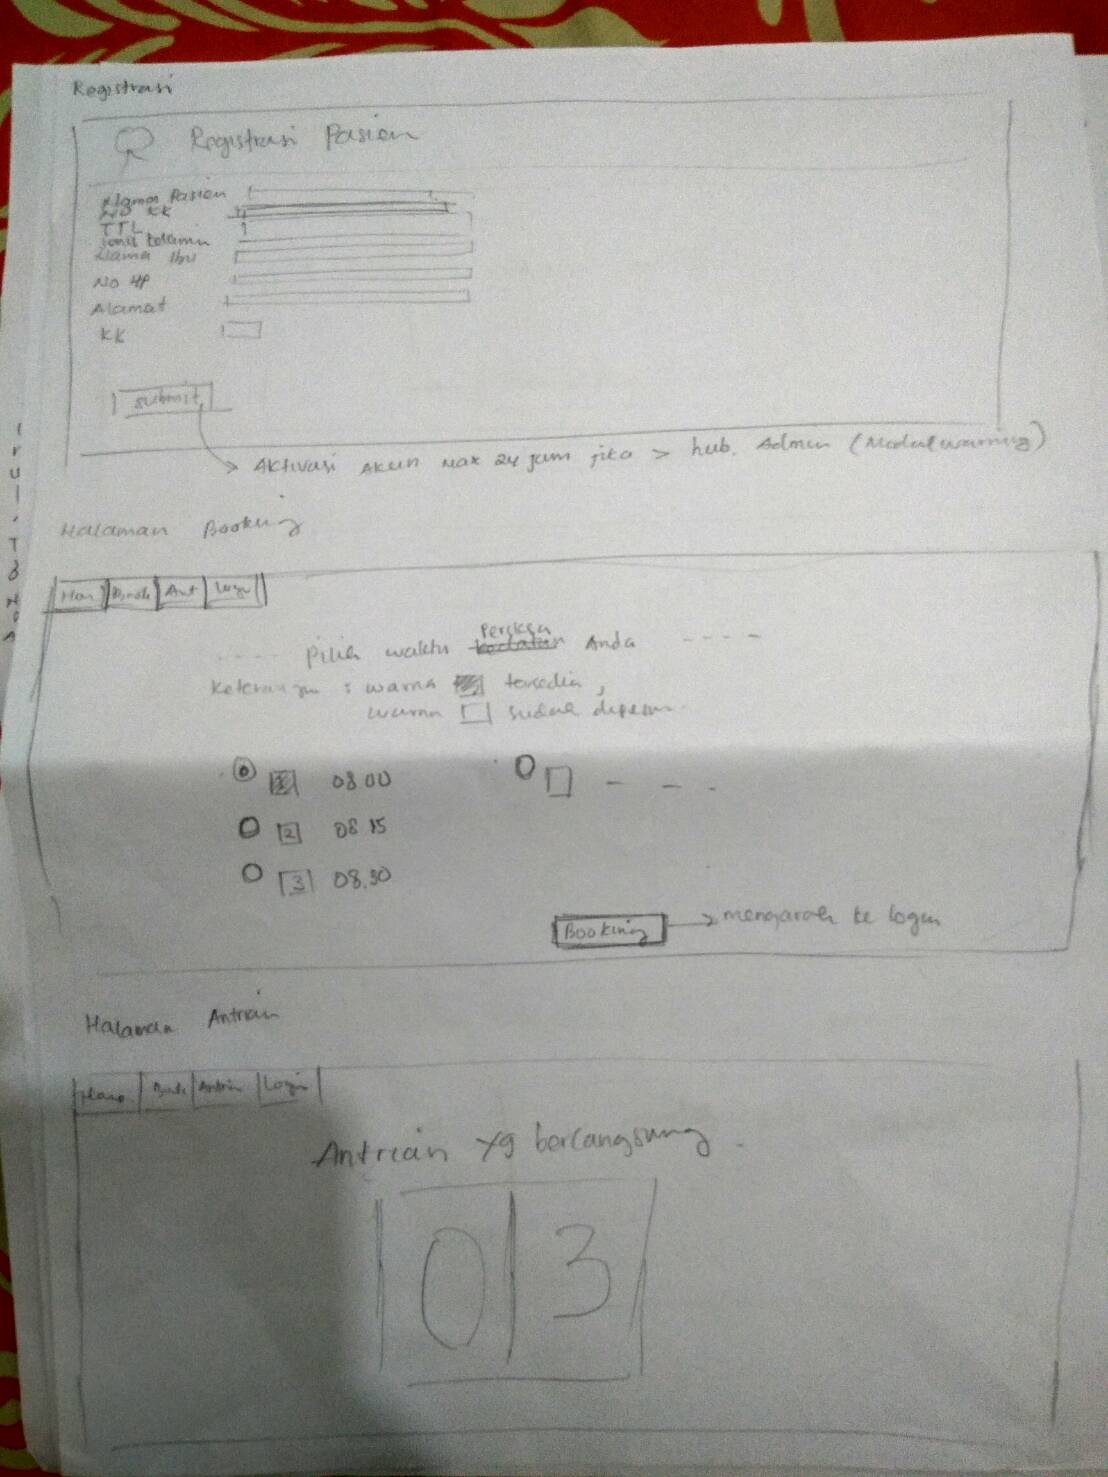 Registrasi
Registrasi Pasien
Nama Pasien
No KK
TTL
Jenis kelamin
Nama Ibu
No HP
Alamat
KK
submit
Aktivasi Akun Max 24 jam jika > hub. Admin (Modul warning)
Halaman Booking
Ant Login
---- Pilih waktu Periksa Anda ----
Keterangan : warna tersedia,
warna sudah dipesan
08.00
2 08.15
3 08.30
Booking → mengarah ke login
Halaman Antrian
Home Antrian Login
Antrian yg berlangsung.
0 3